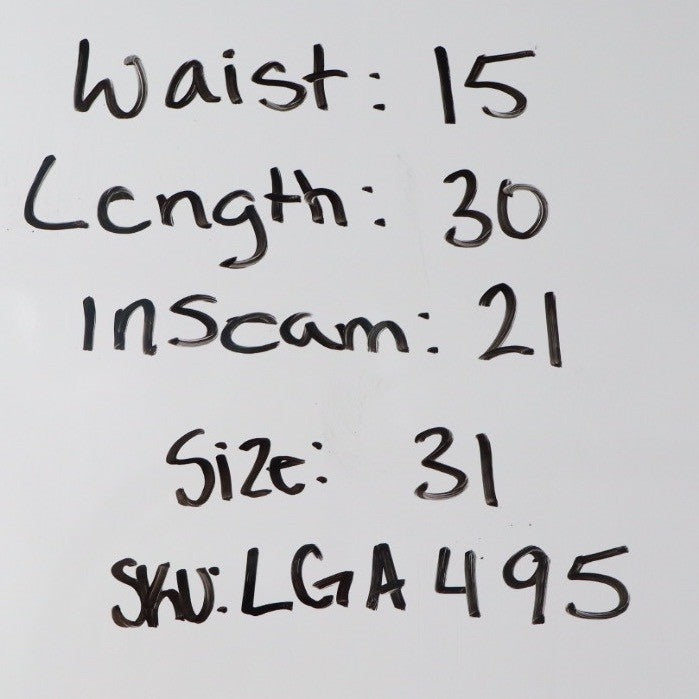 Waist: 15
Length: 30
Inseam: 21
Size: 31
SKU: LGA495